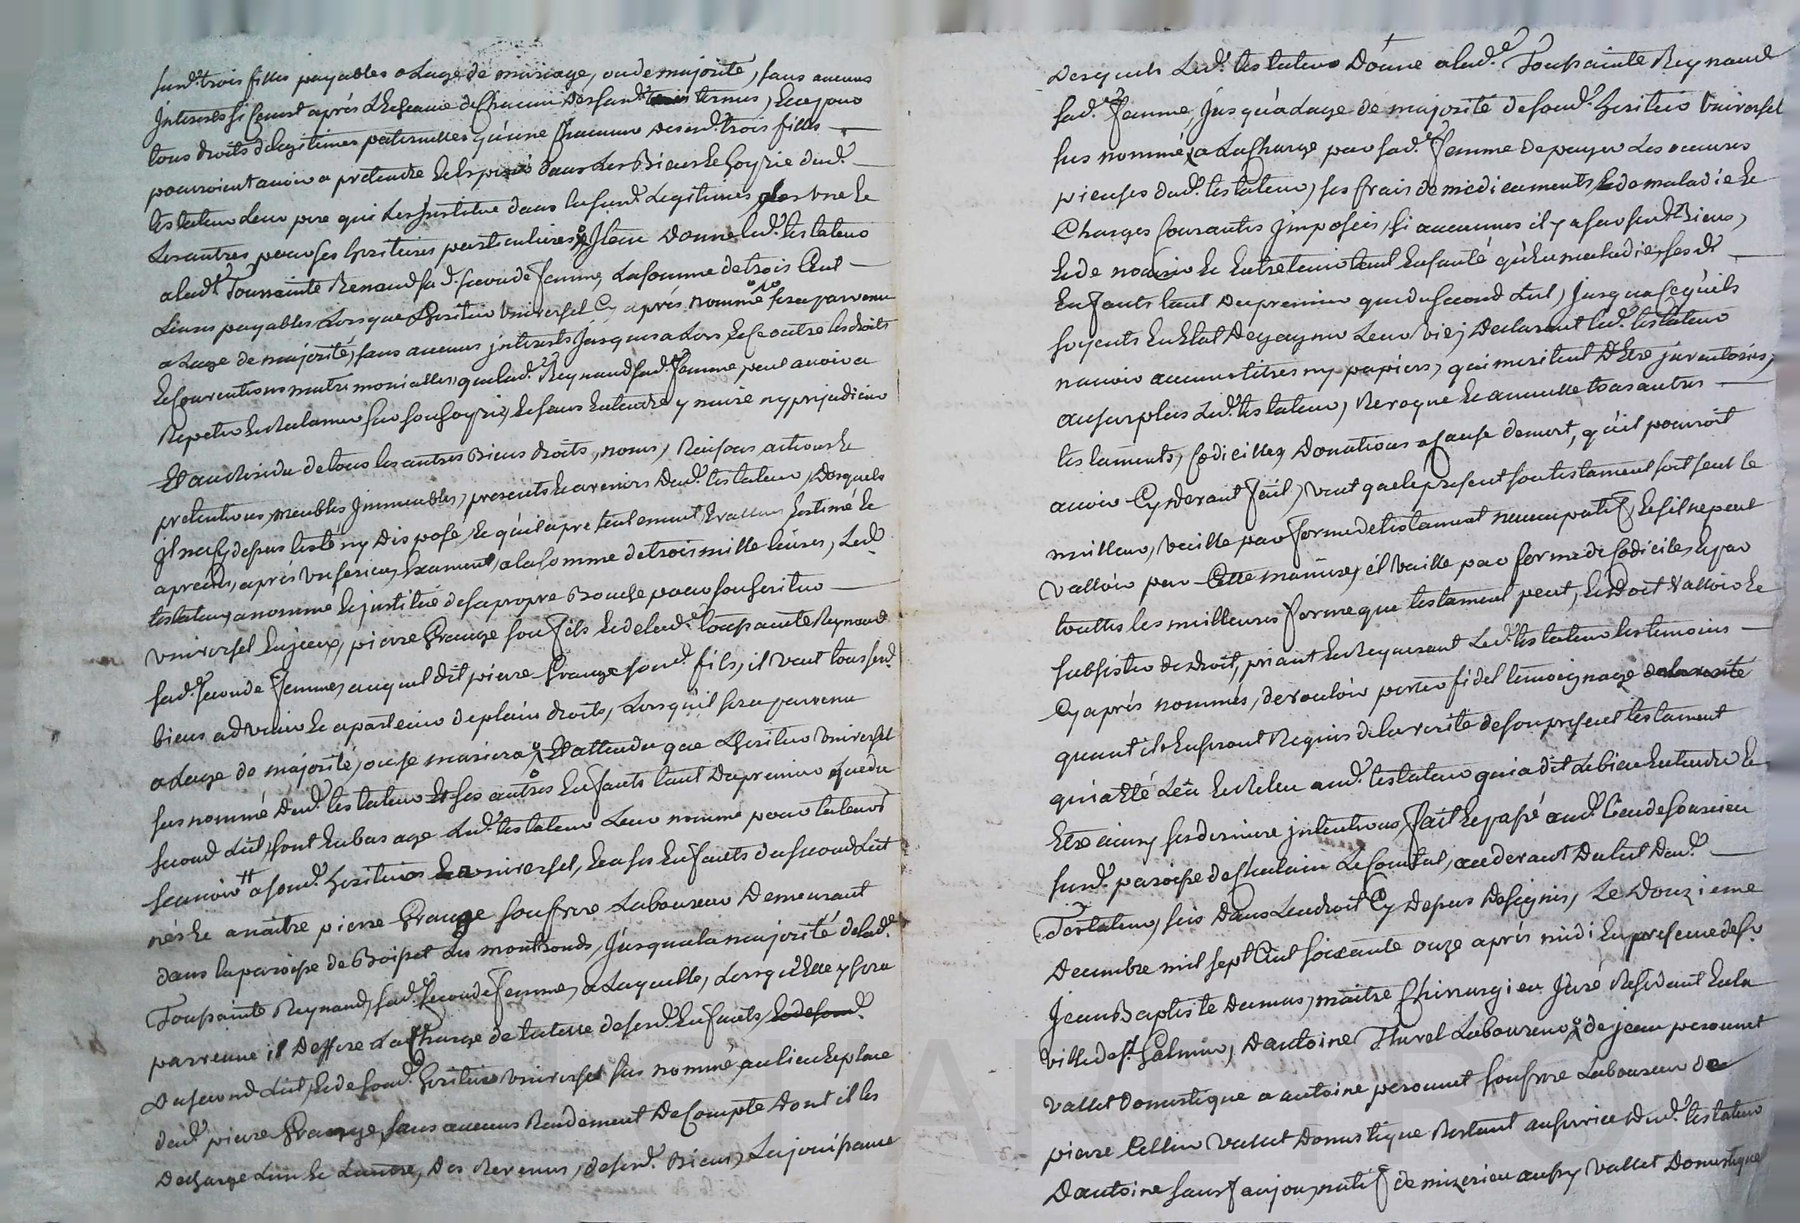 susd. trois filles payables a Lage de mariage, ou de majorité, sans aucuns
jnterests si Cenest aprés L'Echeance de Chacun desdsusd. termes, Et ce pour
tous droits de legitimes paternelles qu'une Chacune desusd. trois filles
pourroient avoir a pretendre Et Esperer dans Les Biens Et hoyrie dud.
testateur Leur pere qui Les jnstitue dans lesusd. Legitimes, Les une Et
Les autres pour ses heritieres particulieres, Jtem donne Led. testateur
a lad. Toussainte Renaud sad. seconde femme, La somme de trois Cent
Livres payables Lorsque L'heritier Universel Cy aprés nommé sera parvenu
a Lage de majorité, sans aucuns jnterests Jusques a Lors, Et ce outre les droits
Et Conventions matrimonialles que lad. Reynaud sad. femme peut avoir a
Repeter Et Reclamer sur son hoyrie, Et sans Entendre y nuire ny prejudicier
Et au Residu de tous les autres Biens droits, noms, Raisons, actions Et
pretentions, meubles jmmeubles, presents Et avenirs dud. testateur, Desquels
jl n'a Cy depuis testé ny disposé, Et qu'il a presentement Evalués Estimé Et
aprecié, aprés un serieux Examen, a la somme de trois mille Livres, Led.
testateur, a nommé Et jnstitué de sa propre Bouche pour son heritier
universel Enjeux, pierre Grange son fils Et de lad. Toussainte Reynaud
sad. seconde femme, auquel dit pierre Grange sond. fils, il veut tous sesd.
biens advenir Et apartenir de plain droits, Lorsqu'il sera parvenu
a Lage de majorité, ou se mariera, Et attendu que L'heritier Universel
sus nommé dud. testateur Et ses autres Enfants tant du premier que du
second Lit, sont En bas age Led. testateur Leur nomme pour tuteur
scavoir a sond. heritier universel, Et a ses Enfants du second Lit
nés Et a naitre pierre Grange son frere Laboureur Demeurant
dans la paroisse de Boisset Les montronds, Jusqu'a la majorité de lad.
Toussainte Reynaud, sad. seconde femme, a Laquelle, Lorsqu'Elle y sera
parvenue il Deffere La Charge de tutelle desesd. Enfants
Du second Lit, Et de sond. heritier Universel sus nommé, au lieu Et place
dud. pierre Grange, sans aucuns Rendement De Compte dont il les
Decharge L'un Et L'autre, Des Revenus, desesd. Biens, La jouissance
Desquels Led. testateur Donne a lad. Toussainte Reynaud
sad. femme, jusqu'a Lage de majorité de sond. heritier Universel
sus nommé, a La Charge par sad. femme de payer Les oeuvres
pieuses dud. testateur, ses frais de medicaments, Et de maladie Et
Charges Courantes jmposées, si aucunes il y a sur susd. Biens,
Et de nourir Et Entretenir tant En santé qu'En maladie, sesd.
Enfants tant du premier que du second Lit, Jusqu'a Ce qu'ils
soyents En Etat De gagner Leur vie, Declarant Led. testateur
n'avoir aucuns titres ny papiers, qui meritent D'Etre jnventoriés,
au surplus Led. testateur, Revoque Et annulle tous autres
testaments, Codicilles, Donations a Cause de mort, qu'il pourroit
avoir Cy devant fait, veut que le present son testament soit seul Et
meilleur, vaille par forme de testament nuncupatif, Et s'il ne peut
valloir par Cette maniere, il vaille par forme de Codicile, Et par
touttes les meilleures forme que testament peut, Et doit valloir Et
subsister de droit, priant Et Requerant Led. testateur les temoins
Cy aprés nommés, de vouloir porter fidel temoignage
quant ils En seront Requis de la verité de son present testament
qui a Eté Lû Et Relu aud. testateur qui a dit Le bien Entendre Et
Etre ainsy ses derniere jntentions, fait Et passé aud. Lieu de Sourcieu
susd. paroisse de Chalain Le Comtal, au devant du Lit dud.
Testateur, sis dans L'endroit Cy depus designé, Le Douzieme
Decembre mil sept Cent soixante onze aprés midi En presence de Sr.
Jean Baptiste Dumas, maitre Chirurgien Juré Residant En la
ville de St. Galmier, D'antoine Thevel Laboureur, de jean peronnet
vallet domestique a antoine peronnet son frere Laboureur
pierre Cellier vallet Domestique Restant au service dud. testateur
D'antoine natif de mizerieu aussy vallet Domestique